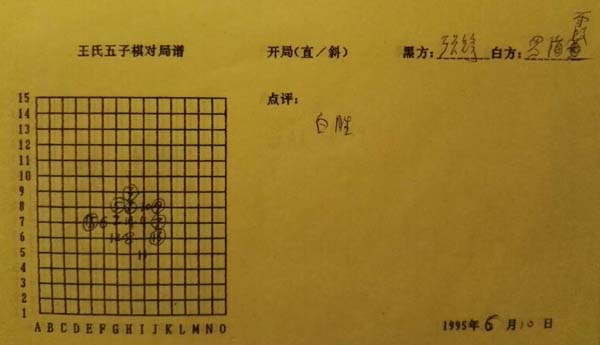 王氏五子棋对局谱 开局(直/斜) 黑方: 白方:
点评:
白胜
15
14
13
12
11
10
9
8
7
6
5
4
3
2
1
A B C D E F G H I J K L M N O
1995年6月10日